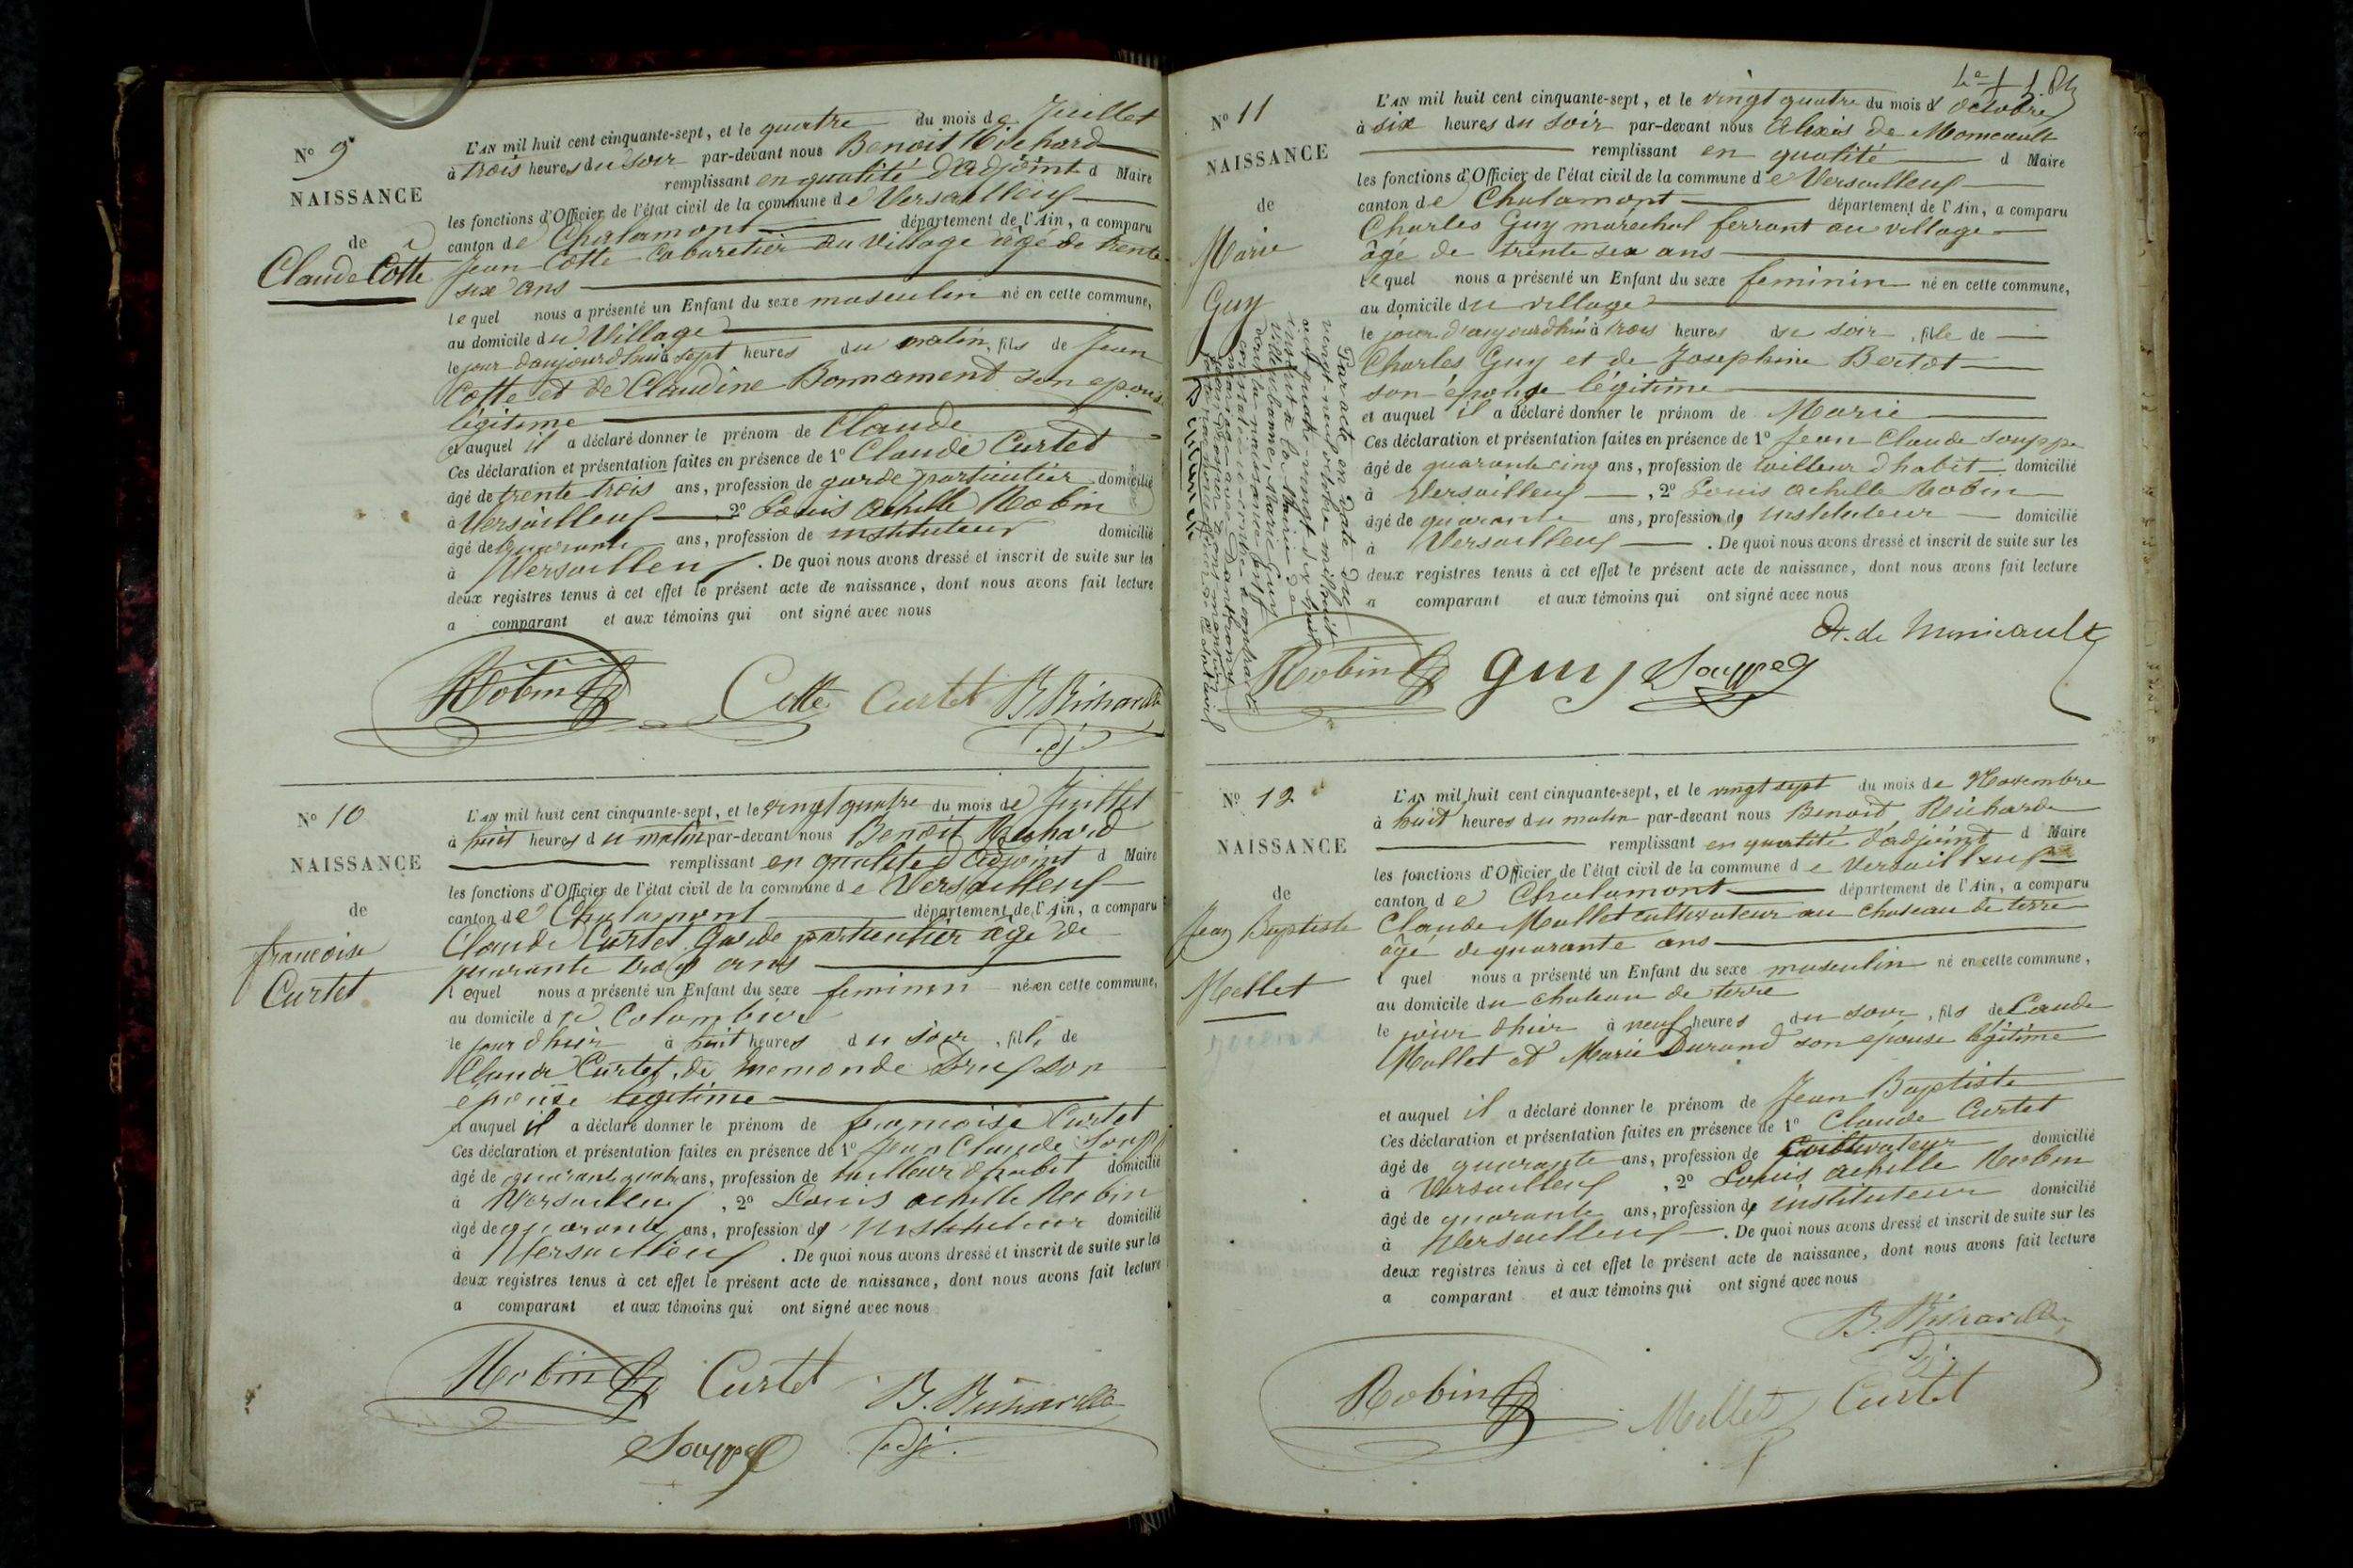 N° 9
NAISSANCE
de
Claude Cotte
L'AN mil huit cent cinquante-sept, et le quatre du mois de Juillet
à trois heures du soir par-devant nous Benoit Richard
remplissant en qualité d'adjoint d Maire
les fonctions d'Officier de l'état civil de la commune de Versailleux
canton de Chalamont département de l'Ain, a comparu
Jean Cotte Cabaretier au village agé de trente
six ans
lequel nous a présenté un Enfant du sexe masculin né en cette commune,
au domicile du Village
le jour d'aujourdhui à sept heures du matin, fils de Jean
Cotte et de Claudine Bonnament son epouse
légitime
et auquel il a déclaré donner le prénom de Claude
Ces déclaration et présentation faites en présence de 1° Claude Curtet
âgé de trente trois ans, profession de garde particulier domicilié
à Versailleux 2° Louis achille Robin
âgé de quarante ans, profession de instituteur domicilié
à Versailleux . De quoi nous avons dressé et inscrit de suite sur les
deux registres tenus à cet effet le présent acte de naissance, dont nous avons fait lecture
a comparant et aux témoins qui ont signé avec nous
Robin Cotte Curtet B. Richard
adj.
N° 10
NAISSANCE
de
francoise
Curtet
L'AN mil huit cent cinquante-sept, et le vingt quatre du mois de Juillet
à huit heures du matin par-devant nous Benoit Richard
remplissant en qualité d'adjoint d Maire
les fonctions d'Officier de l'état civil de la commune de Versailleux
canton de Chalamont département de l'Ain, a comparu
Claude Curtet Garde particulier agé de
quarante trois ans
lequel nous a présenté un Enfant du sexe feminin né en cette commune,
au domicile de Colombier
le jour d'hier à huit heures du soir, fille de
Claude Curtet, de son
epouse legitime
et auquel il a déclaré donner le prénom de francoise Curtet
Ces déclaration et présentation faites en présence de 1° Jean Claude Soupp
âgé de quarante quatre ans, profession de tailleur d'habit domicilié
à Versailleux, 2° Louis achille Robin
âgé de quarante ans, profession de instituteur domicilié
à Versailleux . De quoi nous avons dressé et inscrit de suite sur les
deux registres tenus à cet effet le présent acte de naissance, dont nous avons fait lecture
a comparant et aux témoins qui ont signé avec nous
Robin Curtet B. Richard
Souppe adj.
N° 11
NAISSANCE
de
Marie
Guy
L'AN mil huit cent cinquante-sept, et le vingt quatre du mois d'octobre
à six heures du soir par-devant nous Alexis de Monicault
remplissant en qualité d Maire
les fonctions d'Officier de l'état civil de la commune de Versailleux
canton de Chalamont département de l'Ain, a comparu
Charles Guy marechal ferrant au village
âgé de trente six ans
lequel nous a présenté un Enfant du sexe feminin né en cette commune,
au domicile du village
le jour d'aujourdhui à trois heures du soir, fille de
Charles Guy et de Josephine Bertot
son épouse légitime
et auquel il a déclaré donner le prénom de Marie
Ces déclaration et présentation faites en présence de 1° Jean Claude Souppe
âgé de quarante cinq ans, profession de tailleur d'habit domicilié
à Versailleux, 2° Louis achille Robin
âgé de quarante ans, profession de instituteur domicilié
à Versailleux . De quoi nous avons dressé et inscrit de suite sur les
deux registres tenus à cet effet le présent acte de naissance, dont nous avons fait lecture
a comparant et aux témoins qui ont signé avec nous
A. de Monicault
Robin Guy Souppe
Par acte en date du
vingt neuf octobre mil huit
cent quatre-vingt dix huit
inscrit à la Mairie de
Villeurbanne, Marie Guy
N° 12
NAISSANCE
de
Jean Baptiste
Mollet
L'AN mil huit cent cinquante-sept, et le vingt sept du mois de Novembre
à huit heures du matin par-devant nous Benoit Richard
remplissant en qualité d'adjoint d Maire
les fonctions d'Officier de l'état civil de la commune de Versailleux
canton de Chalamont département de l'Ain, a comparu
Claude Mollet cultivateur au chateau de terre
âgé de quarante ans
l quel nous a présenté un Enfant du sexe masculin né en cette commune,
au domicile du chateau de terre
le jour d'hier à neuf heures du soir, fils de Caude
Mollet et Marie Durand son epouse légitime
et auquel il a déclaré donner le prénom de Jean Baptiste
Ces déclaration et présentation faites en présence de 1° Claude Curtet
âgé de quarante ans, profession de Cultivateur domicilié
à Versailleux, 2° Louis achille Robin
âgé de quarante ans, profession de instituteur domicilié
à Versailleux . De quoi nous avons dressé et inscrit de suite sur les
deux registres tenus à cet effet le présent acte de naissance, dont nous avons fait lecture
a comparant et aux témoins qui ont signé avec nous
B. Richard
adj.
Robin Mollet Curtet